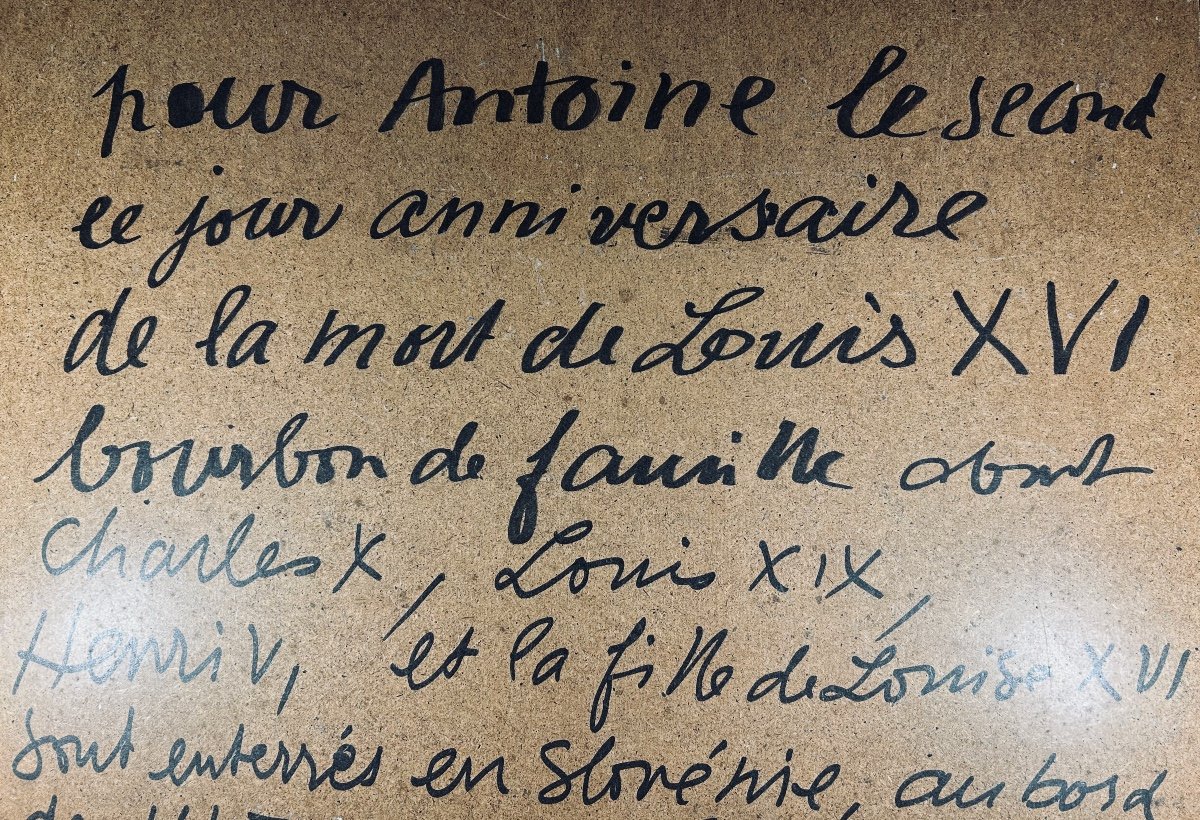 pour Antoine le second
ce jour anniversaire
de la mort de Louis XVI
bourbon de famille dont
Charles X, Louis XIX,
Henri V, et la fille de Louise XVI
sont enterrés en Slovénie, au bord
de